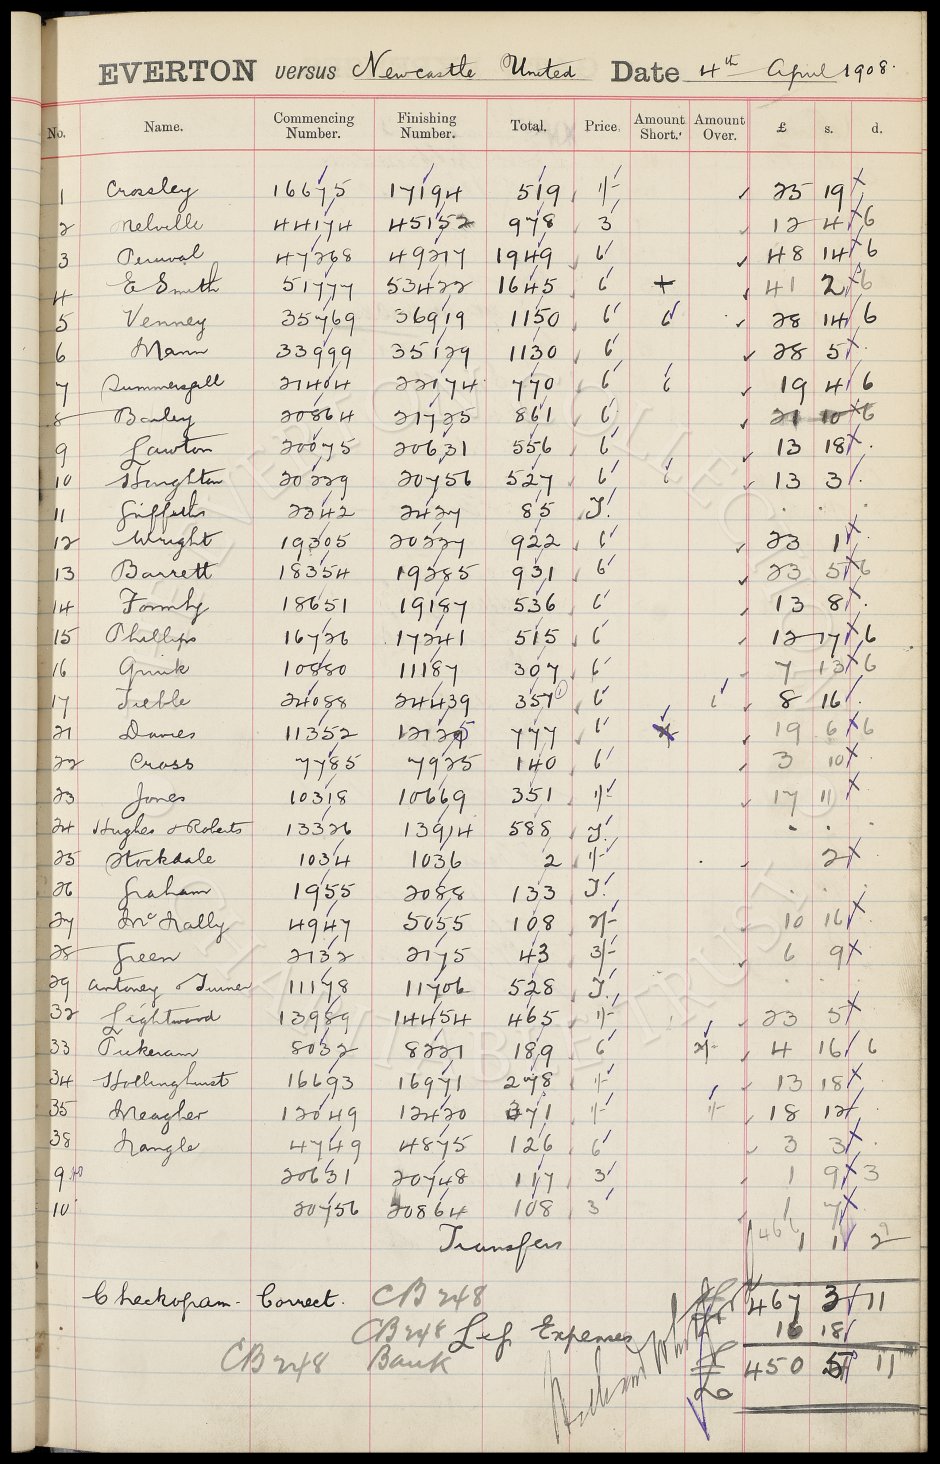 EVERTON versus Newcastle United Date 4th April 1908.
No. Name. Commencing Number. Finishing Number. Total. Price. Amount Short. Amount Over. £ s. d.
1 Crossley 16675 17194 519 1/- 25 19
2 Melville 44174 45152 978 3 12 4 6
3 Percival 47268 49217 1949 6 48 14 6
4 E Smith 51777 53422 1645 6 + 41 2 6
5 Venney 35769 36919 1150 6 6 28 14 6
6 Mann 33999 35129 1130 6 28 5
7 Summersgill 21404 22174 770 6 6 19 4 6
8 Bailey 20864 21725 861 6 21 10 6
9 Lawton 20075 20631 556 6 13 18
10 Houghton 20229 20756 527 6 6 13 3
11 Griffiths 2342 2427 85 J.
12 Wright 19305 20227 922 6 23 1
13 Barrett 18354 19285 931 6 23 5 6
14 Formby 18651 19187 536 6 13 8
15 Phillips 16726 17241 515 6 12 17 6
16 Quirk 10880 11187 307 6 7 13 6
17 Treble 24088 24439 357 6 6 8 16
21 Davies 11352 12129 777 6 19 6 6
22 Cross 7785 7925 140 6 3 10
23 Jones 10318 10669 351 1/- 17 11
24 Hughes & Roberts 13326 13914 588 J.
25 Stockdale 1034 1036 2 1/- 2
26 Graham 1955 2088 133 J.
27 McNally 4947 5055 108 2/- 10 16
28 Green 2132 2175 43 3/- 6 9
29 Antoney & Turner 11178 11706 528 J.
32 Lightwood 13989 14454 465 1/- 23 5
33 Pickeram 8032 8221 189 6 2/- 4 16 6
34 Hollinghurst 16693 16971 278 1/- 13 18
35 Meagher 12049 12420 371 1/- 1/- 18 12
38 Nangle 4749 4875 126 6 3 3
9 20631 20748 117 3 1 9 3
10 20756 20864 108 3 1 7
Transfers 1 1 2
Checkogram. Correct. CB 248 467 3 11
CB 248 Less Expenses 16 18
CB 248 Bank £ 450 5 11